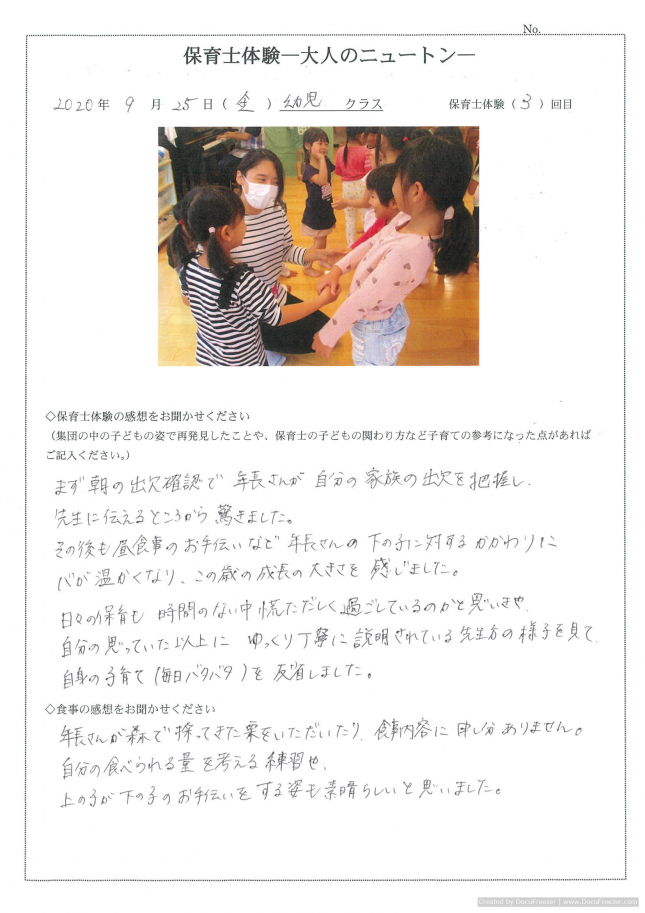 No.
保育士体験―大人のニュートン―
2020年 9月 25日(金) 幼児 クラス 保育士体験(3)回目
◇保育士体験の感想をお聞かせください
(集団の中の子どもの姿で再発見したことや、保育士の子どもの関わり方など子育ての参考になった点があれば
ご記入ください。)
まず朝の出欠確認で 年長さんが 自分の 家族の出欠を把握し、
先生に伝えるところから 驚きました。
その後も昼食事のお手伝いなど 年長さんの 下の子に対する かかわりに
心が温かくなり、この歳の成長の大きさを 感じました。
日々の保育も 時間のない中 慌ただしく過ごしているのかと思いきや、
自分の思っていた以上に ゆっくり丁寧に説明されている先生方の様子を見て、
自身の子育て(毎日バタバタ)を 反省しました。
◇食事の感想をお聞かせください
年長さんが森で採ってきた栗をいただいたり、食事内容に申し分ありません。
自分の食べられる量を考える練習や、
上の子が下の子のお手伝いをする姿も素晴らしいと思いました。
Created by DocuFreezer | www.DocuFreezer.com